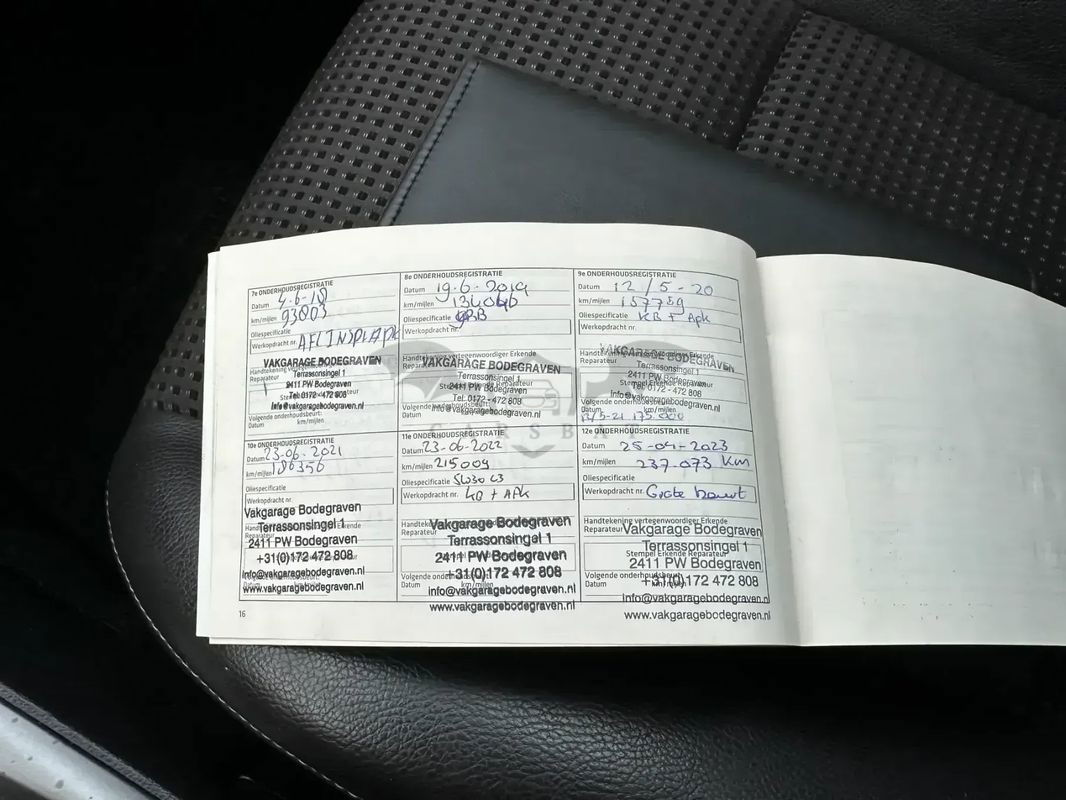 7e ONDERHOUDSREGISTRATIE
Datum 4-6-18
km/mijlen 93003
Oliespecificatie
Werkopdracht nr.
VAKGARAGE BODEGRAVEN
Handtekening
Reparateur
Terrassensingel 1
2411 PW Bodegraven
Tel. 0172 - 472 808
info@vakgaragebodegraven.nl
Volgende onderhoudsbeurt:
Datum km/mijlen
8e ONDERHOUDSREGISTRATIE
Datum 19-6-2019
km/mijlen
Oliespecificatie
Werkopdracht nr.
Handtekening vertegenwoordiger Erkende
VAKGARAGE BODEGRAVEN
Terrassensingel 1
2411 PW Bodegraven
Tel. 0172 - 472 808
info@vakgaragebodegraven.nl
Volgende
Datum
9e ONDERHOUDSREGISTRATIE
Datum 12/5-20
km/mijlen 157759
Oliespecificatie KB + Apk
Werkopdracht nr.
Handtekening vertegenwoordiger Erkende
VAKGARAGE BODEGRAVEN
Terrassensingel 1
2411 PW Bodegraven
Stempel Erkende Reparateur
Tel. 0172 - 472 808
info@vakgaragebodegraven.nl
Volgende onderhoudsbeurt:
km/mijlen
175.000
CARSBAT
10e ONDERHOUDSREGISTRATIE
Datum 23-06-2021
km/mijlen 186356
Oliespecificatie
Werkopdracht nr.
Vakgarage Bodegraven
Reparateur
Terrassonsingel 1
2411 PW Bodegraven
+31(0)172 472 808
info@vakgaragebodegraven.nl
www.vakgaragebodegraven.nl
11e ONDERHOUDSREGISTRATIE
Datum 23-06-2022
km/mijlen 215009
Oliespecificatie 5W30 C3
Werkopdracht nr. KB + APK
Vakgarage Bodegraven
Reparateur
Terrassonsingel 1
2411 PW Bodegraven
+31(0)172 472 808
Volgende
Datum km/mijlen
info@vakgaragebodegraven.nl
www.vakgaragebodegraven.nl
12e ONDERHOUDSREGISTRATIE
Datum 25-04-2023
km/mijlen 237.073 Km
Oliespecificatie
Werkopdracht nr. Grote beurt
Handtekening vertegenwoordiger Erkende
Reparateur
Vakgarage Bodegraven
Terrassonsingel 1
Stempel Erkende Reparateur
2411 PW Bodegraven
Volgende onderhoudsbeurt:
+31(0)172 472 808
Datum km/mijlen
info@vakgaragebodegraven.nl
www.vakgaragebodegraven.nl
16